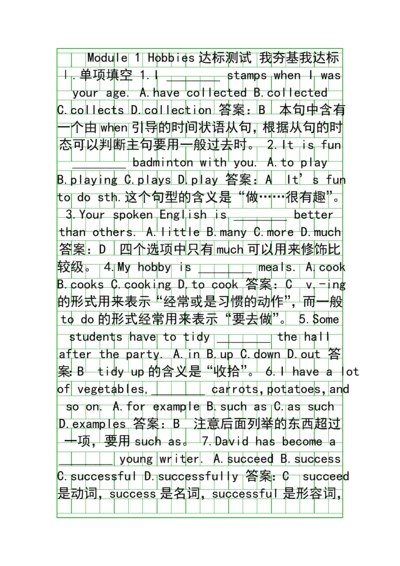 Module 1 Hobbies达标测试 我夯基我达标
Ⅰ.单项填空 1.I ________ stamps when I was
your age. A.have collected B.collected
C.collects D.collection 答案:B 本句中含有
一个由when引导的时间状语从句,根据从句的时
态可以判断主句要用一般过去时。 2.It is fun
________ badminton with you. A.to play
B.playing C.plays D.play 答案:A It’s fun
to do sth.这个句型的含义是“做……很有趣”。
3.Your spoken English is _______ better
than others. A.little B.many C.more D.much
答案:D 四个选项中只有much可以用来修饰比
较级。 4.My hobby is _______ meals. A.cook
B.cooks C.cooking D.to cook 答案:C v.-ing
的形式用来表示“经常或是习惯的动作”,而一般
to do的形式经常用来表示“要去做”。 5.Some
students have to tidy _______ the hall
after the party. A.in B.up C.down D.out 答
案:B tidy up的含义是“收拾”。 6.I have a lot
of vegetables,_______ carrots,potatoes,and
so on. A.for example B.such as C.as such
D.examples 答案:B 注意后面列举的东西超过
一项,要用such as。 7.David has become a
_______ young writer. A.succeed B.success
C.successful D.successfully 答案:C succeed
是动词,success是名词,successful是形容词,